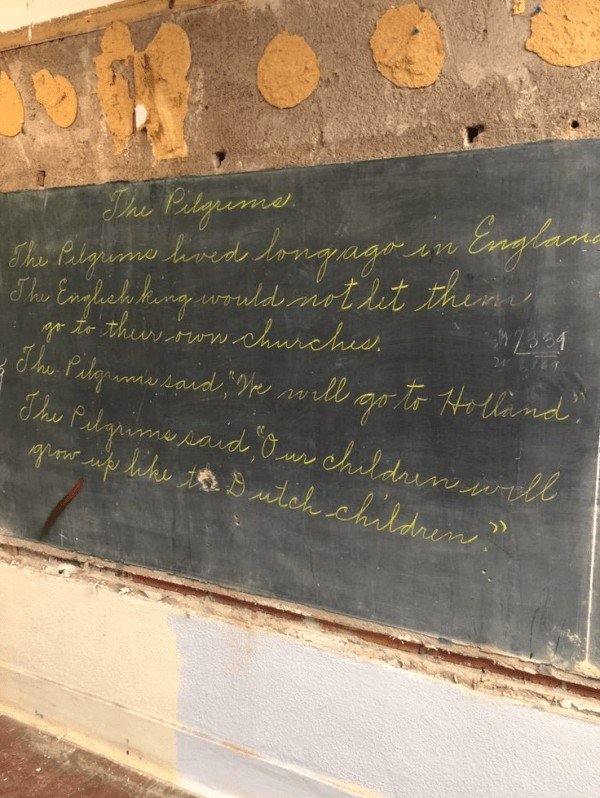 The Pilgrims
The Pilgrims lived long ago in England
The English king would not let them
go to their own churches.
The Pilgrims said, "We will go to Holland".
The Pilgrims said, "Our children will
grow up like the Dutch children."